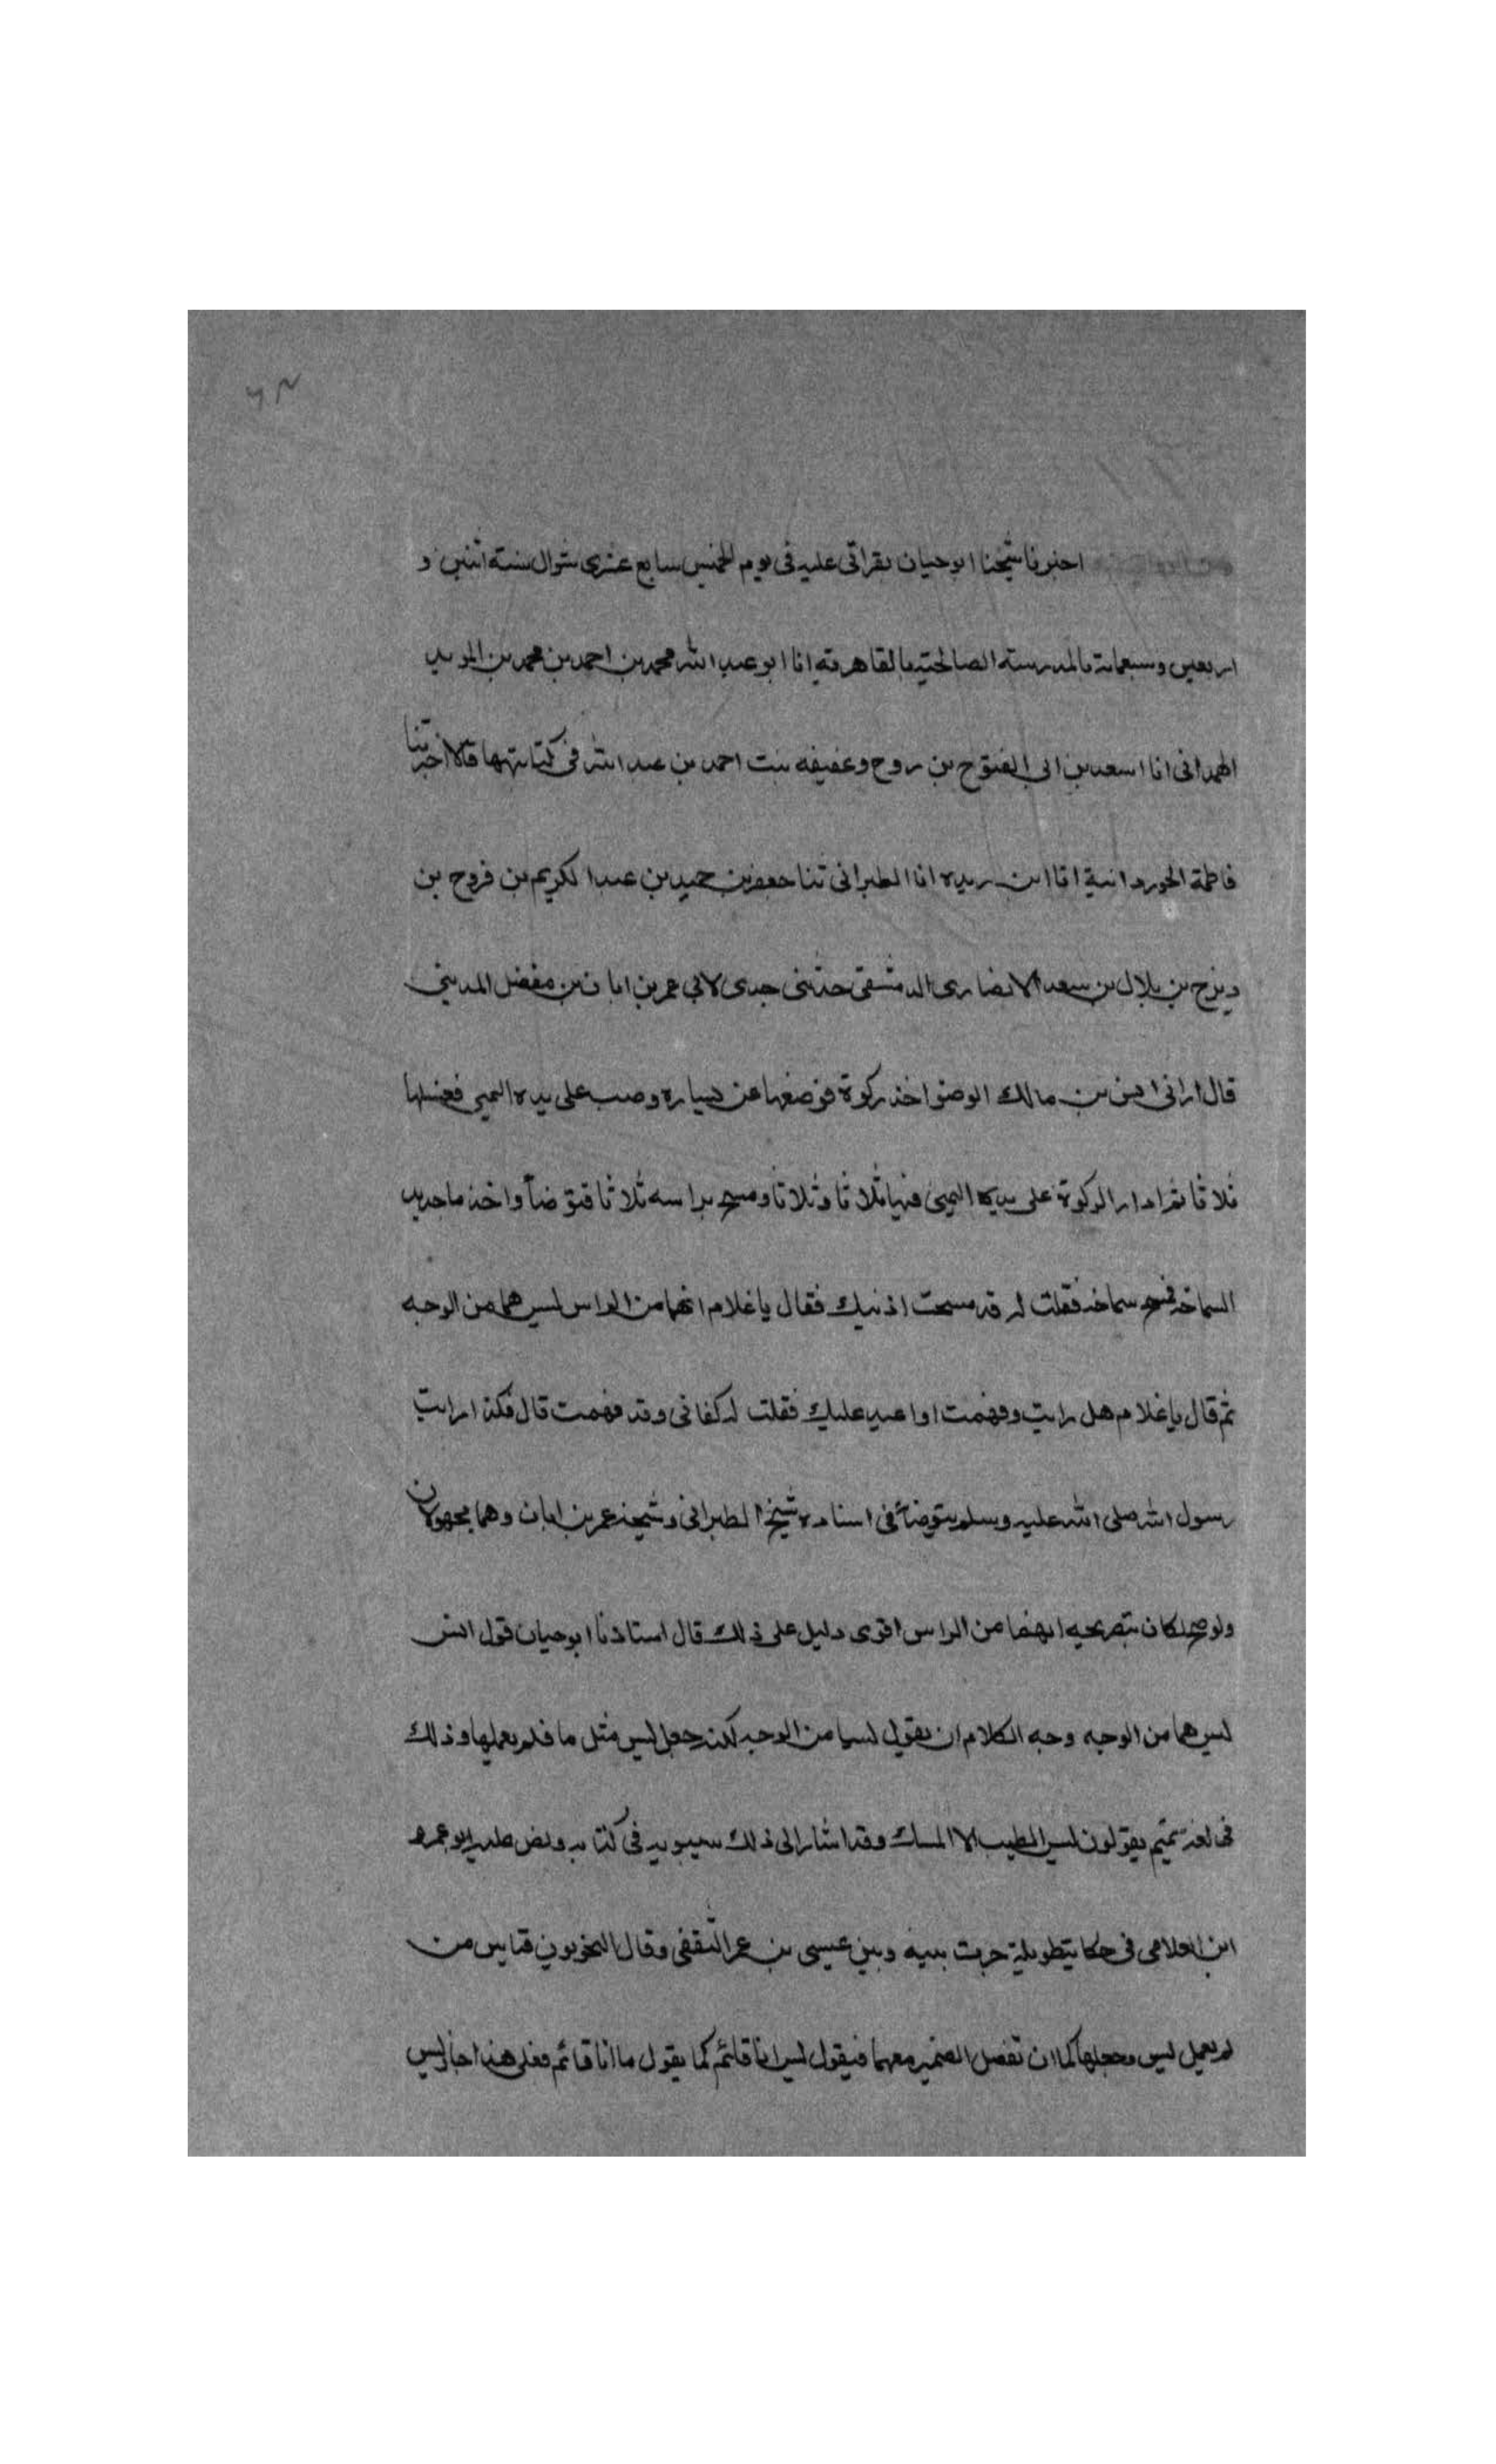 اخبرنا شيخنا ابو حيان بقراتى عليه فى يوم الخميس سابع عشرى شوال سنة اثنين و
اربعين وسبعماية بالمدرسته الصالحتيه بالقاهرته انا ابو عبد الله محمد بن احمد بن محمد بن المويد
الهمدانى انا اسعد بن ابى الفتوح بن روح وعفيفه بنت احمد بن عبد الله فى كتابتهما قالا اخبرتنا
فاطمة الجوردانية انا ابن ريده انا الطبرانى ثنا جعفر بن حميد بن عبد الكريم بن فروح بن
ديزج بن بلال بن سعد الانصارى الدمشقى حدثنى جدى لابى عمر بن ابان بن مفضل المدينى
قال ارانى انس بن مالك الوضوا خذ ركوة فوضعها عن يساره وصب على يده اليمى فغسلها
ثلاثا ثم ادار الركوة على يده اليمنى فيها ثلاثا وثلاثا ومسح براسه ثلاثا فتوضأ واخذ ما جديد
السماخه فمسح سماخه فقلت له قد مسحت اذنيك فقال يا غلام انهما من الراس ليس هما من الوجه
ثم قال يا غلام هل رايت وفهمت اوا عيد عليك فقلت له كفانى وقد فهمت قال فكذا رايت
رسول الله صلى الله عليه وسلم يتوضأ فى اسناده شيخ الطبرانى وشيخه عمر بن ابان وهما مجهولان
ولو صح لكان بتصريحه انهما من الراس اقوى دليل على ذلك قال استاذنا ابو حيان قول انس
ليس هما من الوجه وجه الكلام ان يقول ليسا من الوجه لكنه جعل ليس مثل ما فلم يعملها وذلك
فى لغة تميم يقولون ليس الطيب الا المسك وقد اشار الى ذلك سيبويه فى كتابه ونص عليه ابو عمرو
ابن العلا فى حكاية طويلة جرت بينه وبين عيسى بن عمر الثقفى وقال النحويون قياس من
لم يعمل ليس وجعلها كما ان تفصل الضمير معهما فيقول ليس انا قائم كما يقول ما انا قائم فعلى هذا اجاز ليس